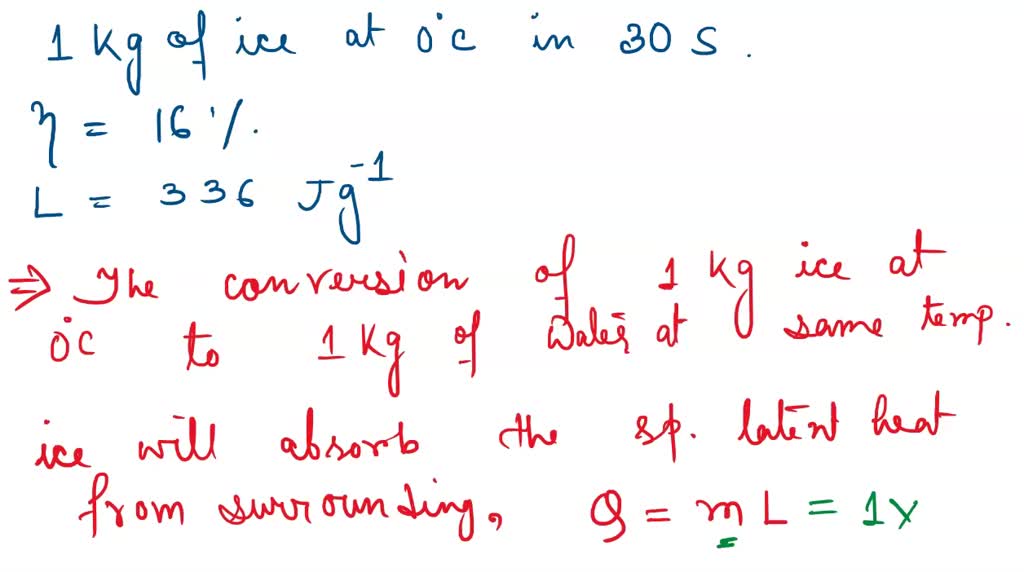 1 Kg of ice at 0°C in 30 S.
η = 16 %.
L = 336 Jg⁻¹
⇒ The conversion of 1 Kg ice at
0°C to 1 Kg of Water at same temp.
ice will absorb the sp. latent heat
from surrounding, Q = m L = 1x